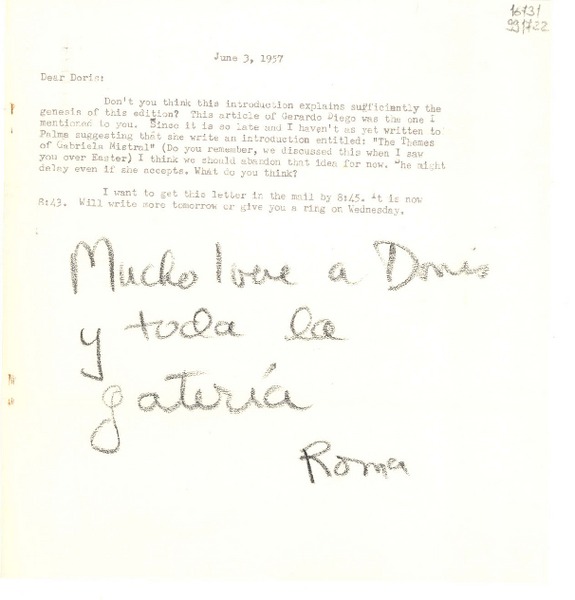 16731
991722
June 3, 1957
Dear Doris:
Don't you think this introduction explains sufficiently the
genesis of this edition? This article of Gerardo Diego was the one I
mentioned to you. Since it is so late and I haven't as yet written to
Palma suggesting that she write an introduction entitled: "The Themes
of Gabriela Mistral" (Do you remember, we discussed this when I saw
you over Easter) I think we should abandon that idea for now. She might
delay even if she accepts. What do you think?
I want to get this letter in the mail by 8:45. It is now
8:43. Will write more tomorrow or give you a ring on Wednesday.
Mucho love a Doris
y toda la
gatería
Roma